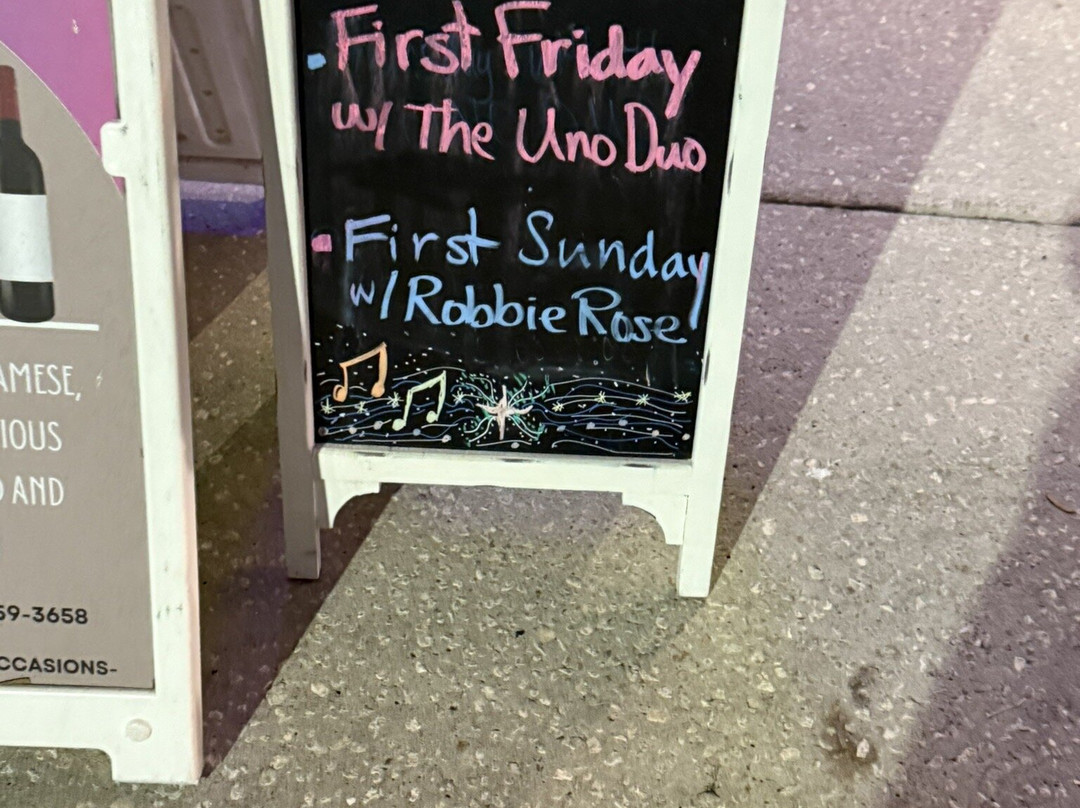 First Friday
w/ The Uno Duo
First Sunday
w/ Robbie Rose
AMESE,
IOUS
AND
59-3658
CCASIONS-